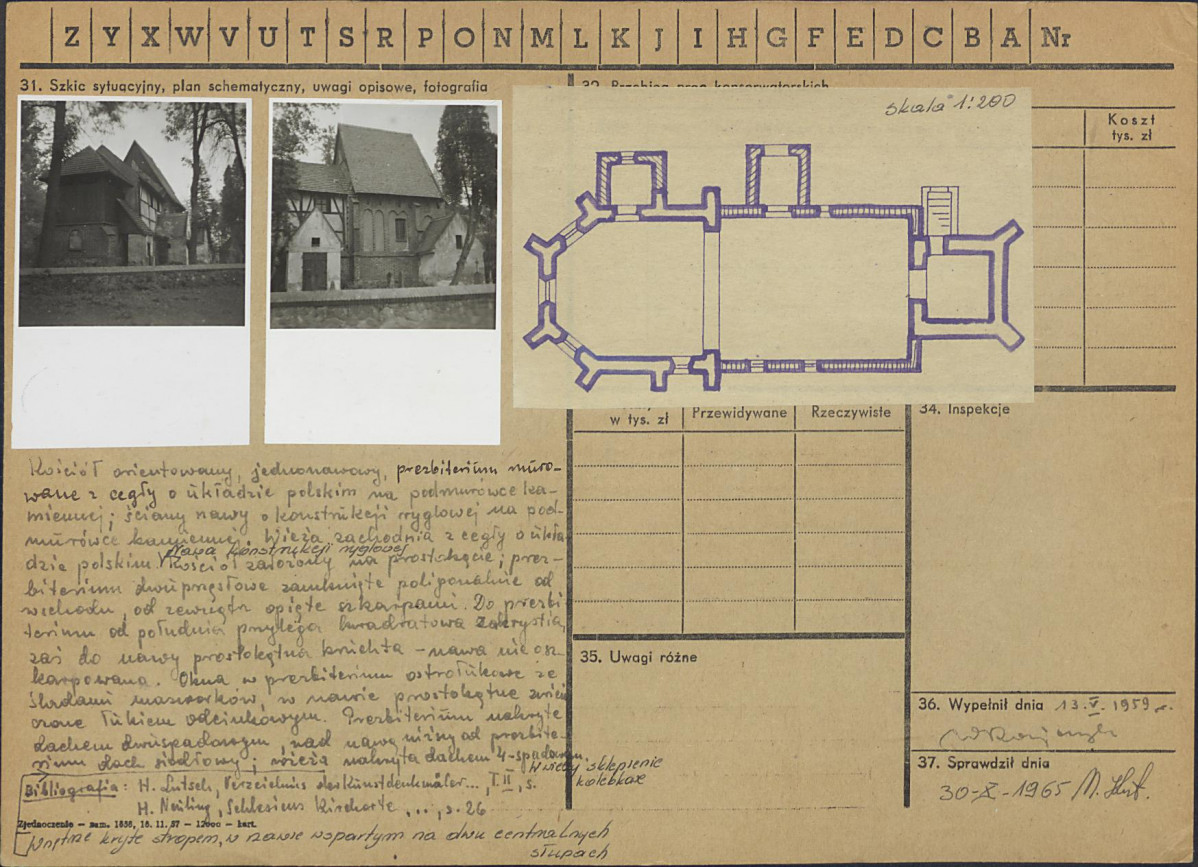 Z Y X W V U T S R P O N M L K J I H G F E D C B A Nr
31. Szkic sytuacyjny, plan schematyczny, uwagi opisowe, fotografia
32. Przebieg prac konserwatorskich
skala 1:200
Koszt
tys. zł
w tys. zł
Przewidywane
Rzeczywiste
34. Inspekcje
Kościół orientowany, jednonawowy, prezbiterium muro-
wane z cegły o układzie polskim na podmurówce ka-
miennej; ściany nawy o konstrukcji ryglowej na pod-
murówce kamiennej. Wieża zachodnia z cegły o ukła-
nawa konstrukcji ryglowej
dzie polskim. Kościół założony na prostokącie; prez-
biterium dwuprzęsłowe zamknięte poligonalnie od
wschodu, od zewnątrz opięte szkarpami. Do prezbi-
terium od południa przylega kwadratowa zakrystia,
zaś do nawy prostokątna kruchta - nawa nie osz-
karpowana. Okna w prezbiterium ostrołukowe ze
śladami maswerków, w nawie prostokątne zwień-
czone łukiem odcinkowym. Prezbiterium nakryte
dachem dwuspadowym, nad nawą niższy od prezbite-
rium dach siodłowy; wieża nakryta dachem 4-spadowym.
W wieży sklepienie
kolebkowe
Bibliografia: H. Lutsch, Verzeichnis der Kunstdenkmäler..., T. II, s.
H. Neuling, Schlesiens Kirchorte ..., s. 26
Zjednoczenie - zam. 1656, 16. 11. 57 - 12000 - kart.
Wnętrze kryte stropem, w nawie wspartym na dwu centralnych
słupach
35. Uwagi różne
36. Wypełnił dnia 13. V. 1959 r.
37. Sprawdził dnia
30-X-1965 M.